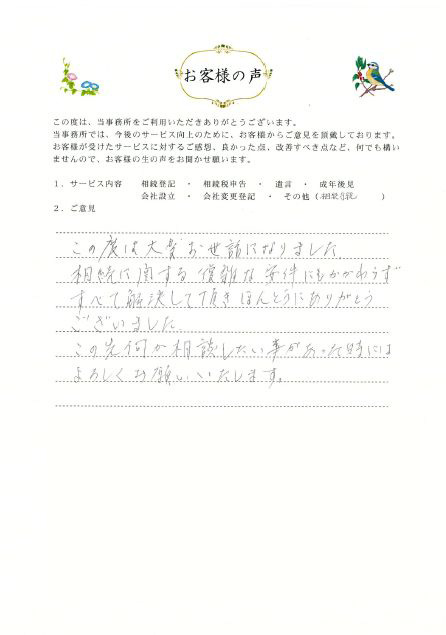 お客様の声
この度は、当事務所をご利用いただきありがとうございます。
当事務所では、今後のサービス向上のために、お客様からご意見を頂戴しております。
お客様が受けたサービスに対するご感想、良かった点、改善すべき点など、何でも構い
ませんので、お客様の生の声をお聞かせ願います。
1．サービス内容　相続登記　・　相続税申告　・　遺言　・　成年後見
会社設立　・　会社変更登記　・　その他（相続手続）
2．ご意見
この度は大変お世話になりました。
相続に関する複雑な案件にもかかわらず
すべて解決して頂きほんとうにありがとう
ございました。
この先何か相談したい事があった時には
よろしくお願いいたします。